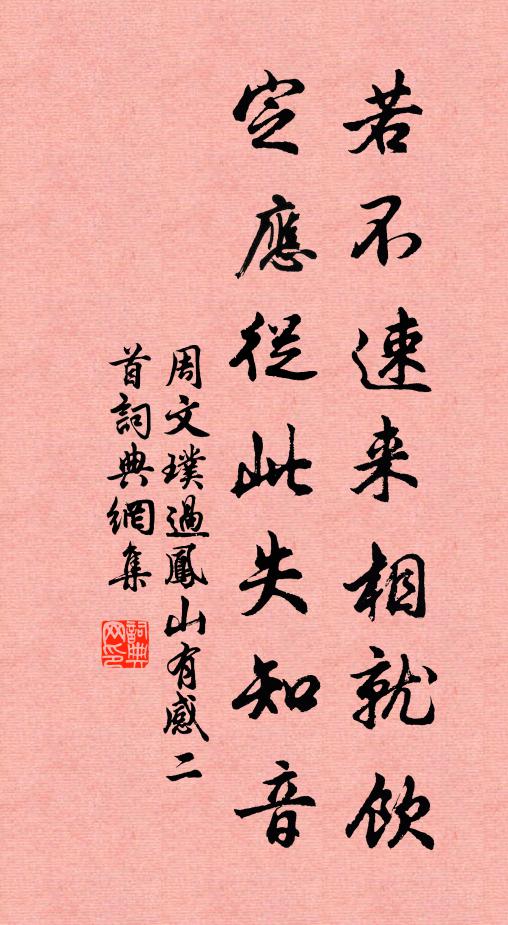 若不速来相就飲
定應從此失知音
周文璞過鳳山有感二
首詞典網集
詞典
网印